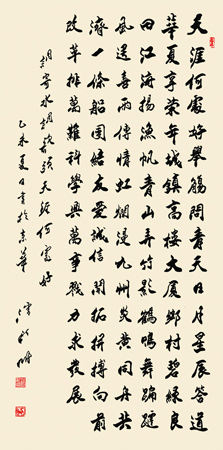 天涯何處好青天日月星辰答
華夏享榮年城鎮高樓大厦鄉村碧綠良
田江海揚漁帆青山弄竹影鶴鳴舞蹁躚
風送喜雨傳情虹煙漫九州同舟共
濟一條船團結友愛誠信開拓拼搏向前
改革排萬難科學興萬事力求發展
水調歌頭天涯何處好
乙未夏日書於京華